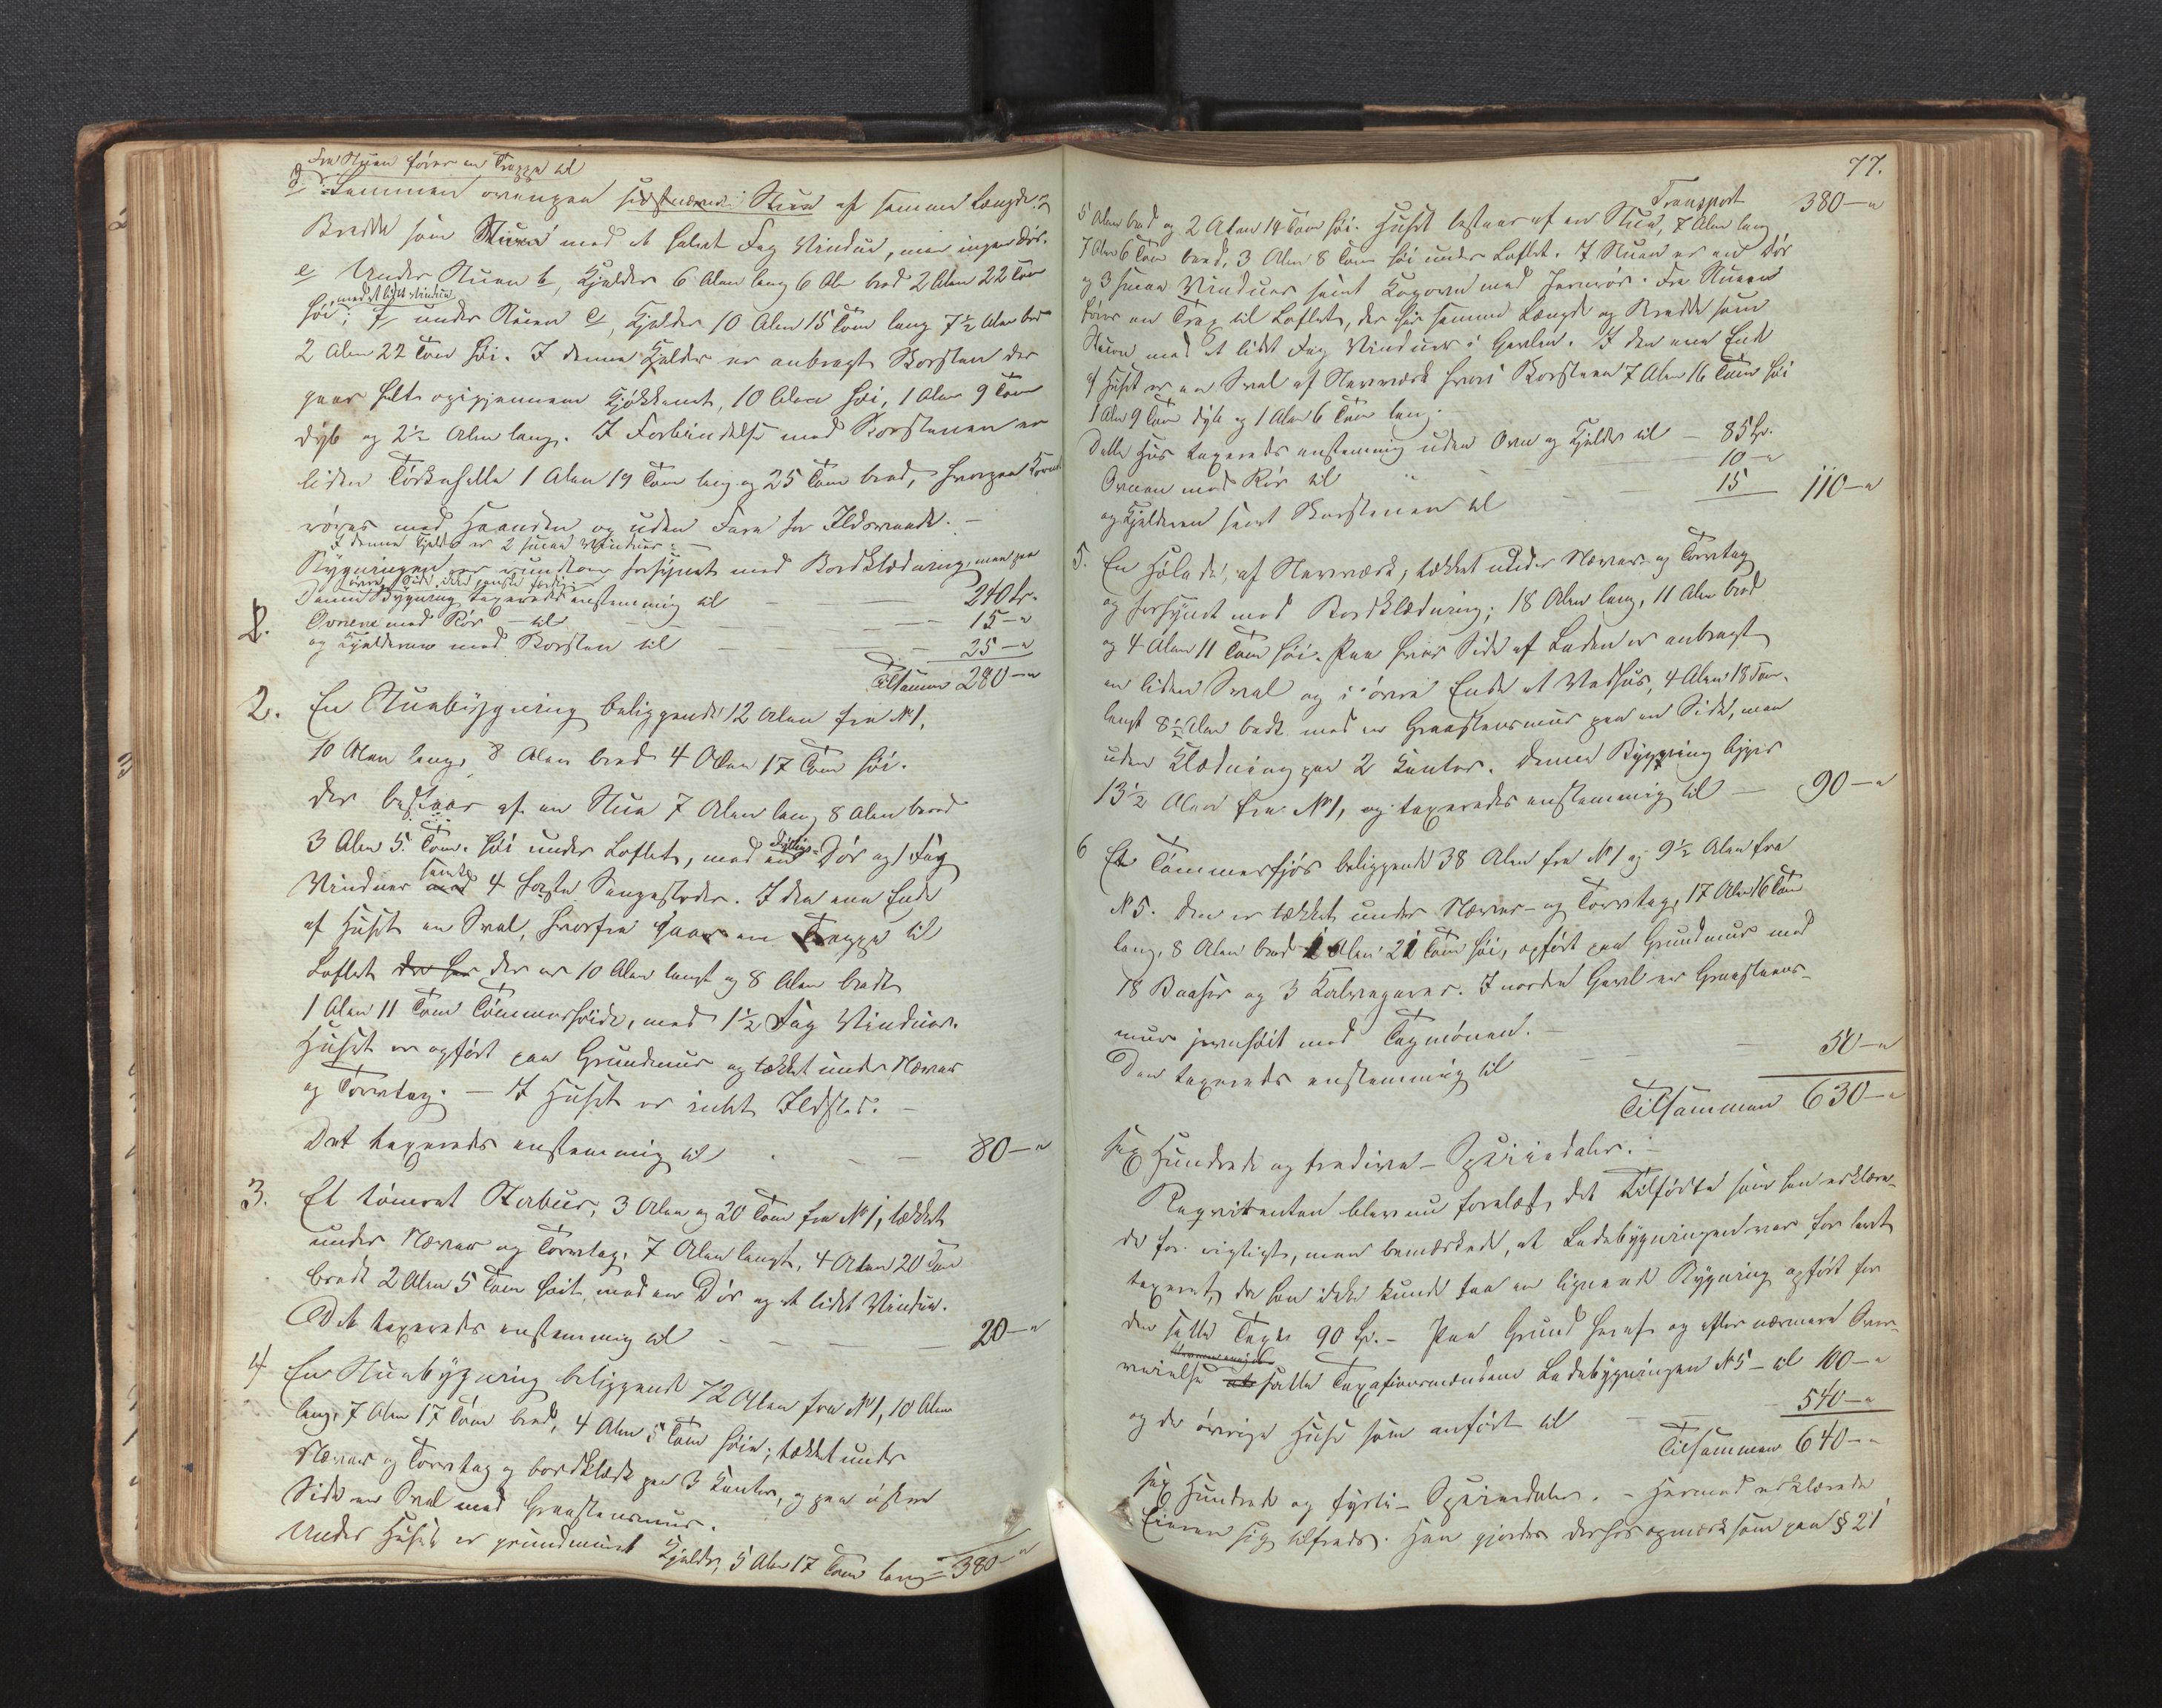 Fra Stuen fører en Trappe til
d, Lemmen ovenpaa sidstnævnte Stue af samme Længde og
Bredde som Stuen med et halvt Fag Vindue, men ingen Dør.
e, Under Stuen b, Kjelder 6 Alen lang 6 Al. bred 2 Alen 22 Tom
med et lidet Vindue
høi; f, under Stuen c, Kjelder 10 Alen 15 Tom lang 7½ Alen bred
2 Alen 22 Tom høi. I denne Kjelder er anbragt Skorsten der
gaaer helt opigjennem Kjøkkenet, 10 Alen høi, 1 Alen 9 Tom
dyb og 2½ Alen lang. I Forbindelse med Skorstenen er
liden Tørkehelle 1 Alen 19 Tom lang og 25 Tom bred, hvorpaa Kornet
røres med Haanden og uden Fare for Ildsvaade. –
I denne Kjelder er 2 smaa Vinduer. –
Bygningen er rundtom forsynet med Bordklædning, men paa
øvre Side ikke ganske færdig. –
Denne Bygning taxeredes enstemmig til – 240 Sp.
1. Ovnene med Rør – til – 15 – "
og Kjelderne med Skorsten til – 25 – "
Tilsammen 280 – "
2. En Stuebygning beliggende 12 Alen fra No 1,
10 Alen lang, 8 Alen bred 4 Alen 17 Tom høi.
Der bestaaer af en Stue 7 Alen lang 8 Alen bred
3 Alen 5 Tom. høi under Loftet, med en Fyllings- Dør og 1 Fag
Vinduer med samt 4 faste Sengesteder. I den ene Ende
af Huset en Sval, hvorfra gaaer en Trappe til
Loftet der har der er 10 Alen langt og 8 Alen bredt
1 Alen 11 Tom Tømmerhøide, med 1½ Fag Vinduer.
Huset er opført paa Grundmuur og tækket under Næver
og Torvtag. – I Huset er intet Ildsted. –
Det taxeredes enstemmig til – 80 – "
3. Et tømret Stabuur, 3 Alen og 20 Tom fra No 1, tækket
under Næver og Torvtag, 7 Alen langt, 4 Alen 20 Tom
bredt 2 Alen 5 Tom høit, med en Dør og et lidet Vindue.
Det taxeredes enstemmig til – 20 – "
4 En Stuebygning beliggende 72 Alen fra No 1, 10 Alen
lang, 7 Alen 17 Tom bred, 4 Alen 5 Tom høi; tækket under
Næver og Torvtag og bordklædt paa 3 Kanter, og paa østre
Side en Sval med Graasteensmuur.
Under Huset er grundmuret Kjelder, 5 Alen 17 Tom lang 380 – "
77.
Transport 380 – "
5 Alen bred og 2 Alen 14 Tom høi. Huset bestaaer af en Stue, 7 Alen lang
7 Alen 6 Tom bred, 3 Alen 8 Tom høi under Loftet. I Stuen er en Dør
og 3 smaa Vinduer samt Kogeovn med Jernrør. Fra Stuen
fører en Trap til Loftet, der har samme Længde og Bredde som
Stuen med et lidet Fag Vinduer i Gavlen. I den ene Ende
af Huset er en Sval af Stavværk hvori Skorsteen 7 Alen 16 Tom høi
1 Alen 9 Tom dyb og 1 Alen 6 Tom lang.
Dette Huus taxeredes enstemmig uden Ovn og Kjelder til – 85 Sp.
Ovnen med Rør til – 10 – "
og Kjelderen samt Skorstenen til – 15 110 – "
5. En Hølade, af Stavværk, tækket under Næver- og Torvtag
og forsynet med Bordklædning; 18 Alen lang, 11 Alen bred
og 4 Alen 11 Tom høi. Paa hver Side af Laden er anbragt
en liden Sval og i øvre Ende et Vedhuus, 4 Alen 18 Tom.
langt 8½ Alen bredt med en Graasteensmuur paa en Side, men
uden Klædning paa 2 Kanter. Denne Bygning ligger
13½ Alen fra No 1, og taxeredes enstemmig til – 90 – "
6 Et Tømmerfjøs beliggende 38 Alen fra No 1 og 9½ Alen fra
No 5. Den er tækket under Næver- og Torvtag, 17 Alen 16 Tom
lang, 8 Alen bred 1 Alen 21 Tom høi, opført paa Grundmuur med
18 Baaser og 3 Kalvegarer. I nordre Gavl er Graasteens-
muur jevnhøit med Tagmønen. –
Den taxeredes enstemmig til – 50 – "
Tilsammen 630 – "
sex Hundrede og tredive – Speciedaler. –
Reqvirenten blev nu forelæst det Tilførte som han erklære-
de for rigtigt, men bemærkede, at Ladebygningen var for lavt
taxeret, da han ikke kunde faa en lignende Bygning opført for
den satte Taxt 90 Sp. – Paa Grund heraf og efter nærmere Over-
veielse satte Taxationsmændene Ladebygningen No 5 – til 100 – "
og de øvrige Huse som anført til 540 – "
Tilsammen 640 – "
sex Hundrede og fyrti – Speciedaler. – Hermed erklærede
Eieren sig tilfreds. Han gjordes derhos opmærksom paa § 21